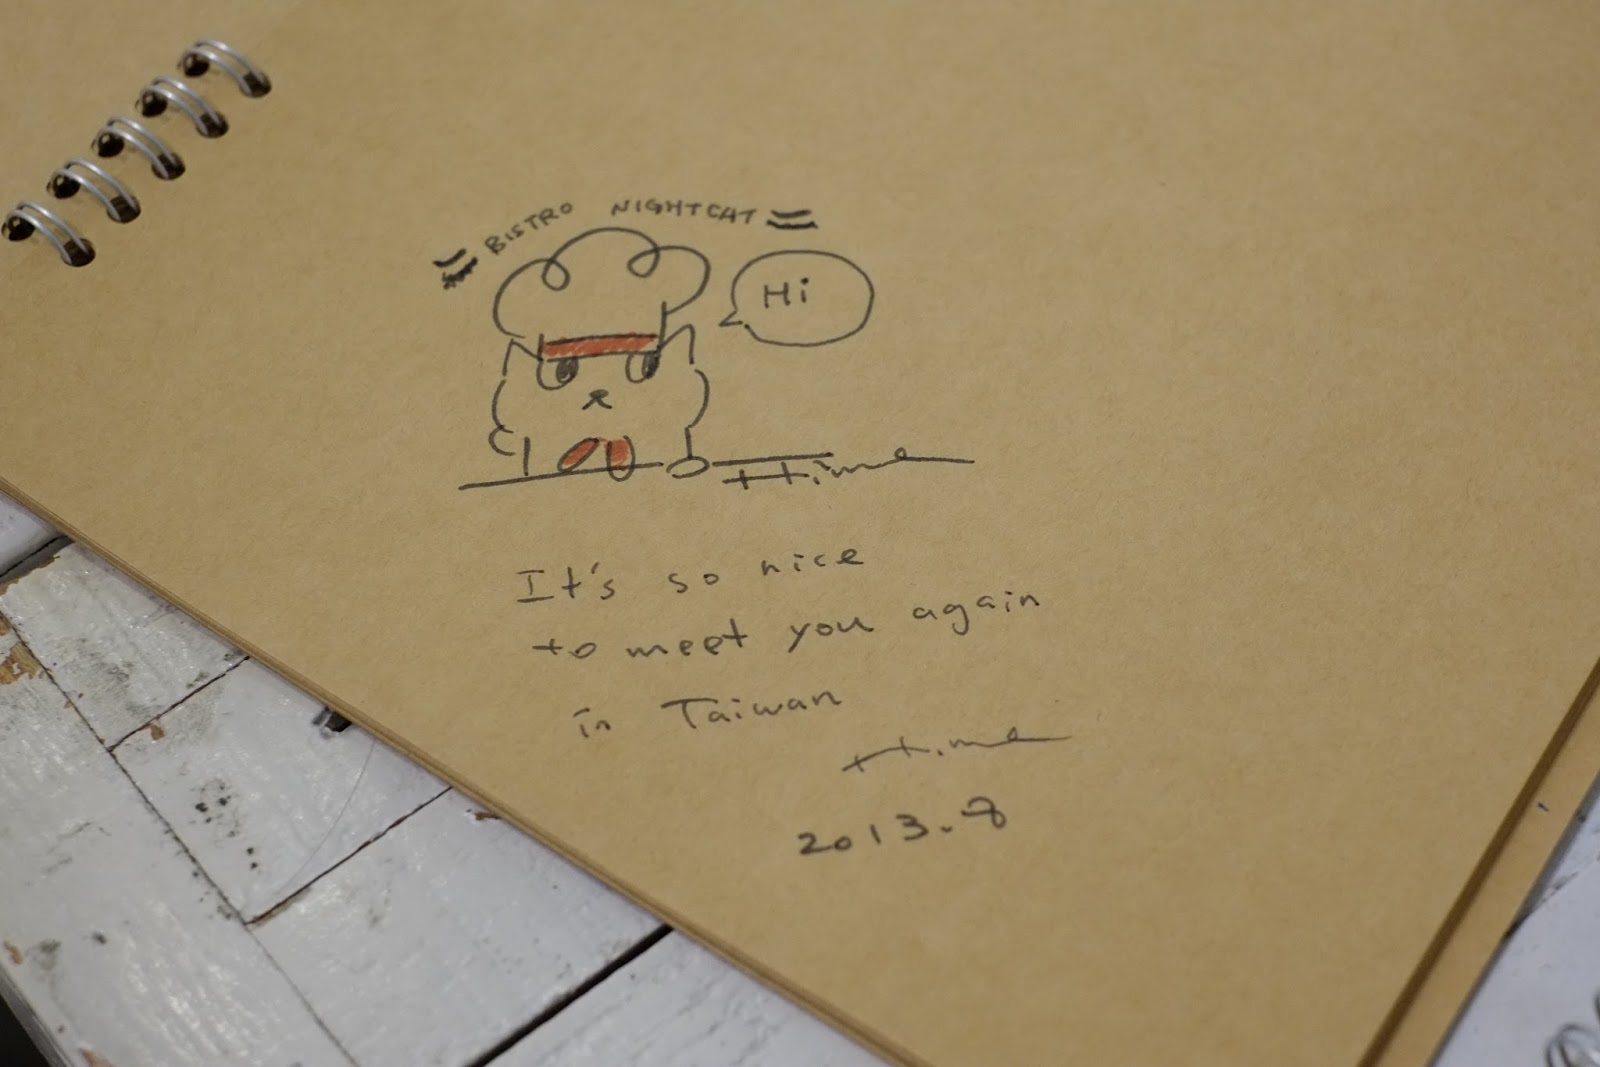 BISTRO NIGHTCAT
Hi
Hime
It's so nice
to meet you again
in Taiwan
Hime
2013.8